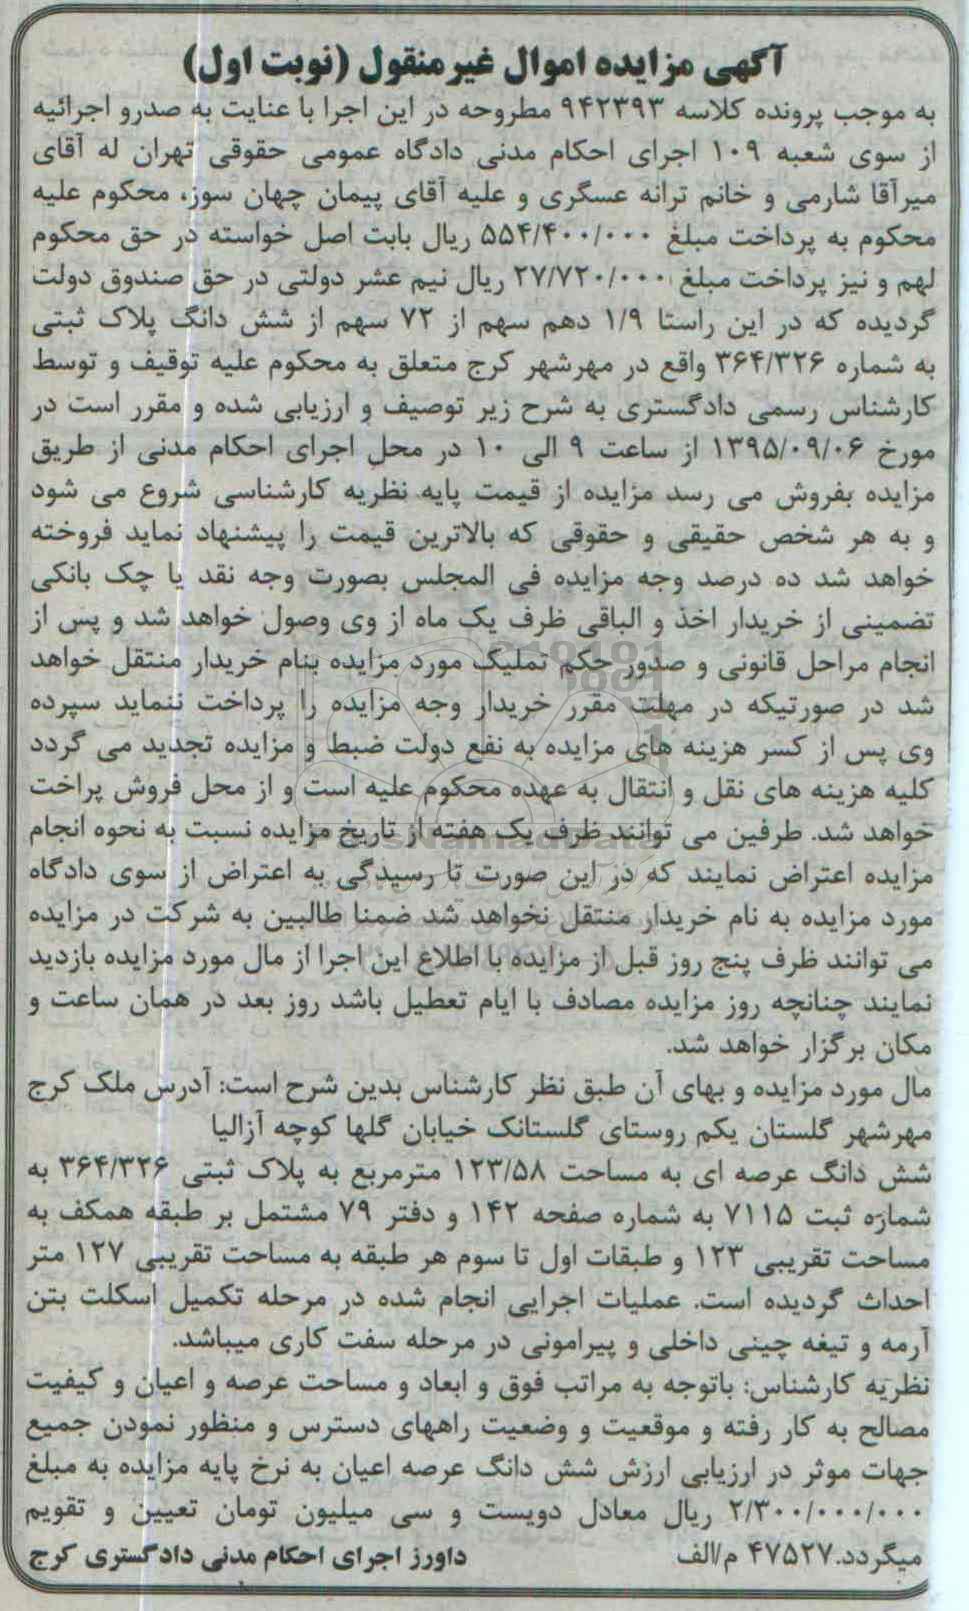 آگهی مزایده اموال غیرمنقول (نوبت اول)
به موجب پرونده کلاسه ۹۴۲۳۹۳ مطروحه در این اجرا با عنایت به صدرو اجرائیه
از سوی شعبه ۱۰۹ اجرای احکام مدنی دادگاه عمومی حقوقی تهران له آقای
میرآقا شارمی و خانم ترانه عسگری و علیه آقای پیمان چهان سوز، محکوم علیه
محکوم به پرداخت مبلغ ۵۵۴/۴۰۰/۰۰۰ ریال بابت اصل خواسته در حق محکوم
لهم و نیز پرداخت مبلغ ۲۷/۷۲۰/۰۰۰ ریال نیم عشر دولتی در حق صندوق دولت
گردیده که در این راستا ۱/۹ دهم سهم از ۷۲ سهم از شش دانگ پلاک ثبتی
به شماره ۳۶۴/۳۲۶ واقع در مهرشهر کرج متعلق به محکوم علیه توقیف و توسط
کارشناس رسمی دادگستری به شرح زیر توصیف و ارزیابی شده و مقرر است در
مورخ ۱۳۹۵/۰۹/۰۶ از ساعت ۹ الی ۱۰ در محل اجرای احکام مدنی از طریق
مزایده بفروش می رسد مزایده از قیمت پایه نظریه کارشناسی شروع می شود
و به هر شخص حقیقی و حقوقی که بالاترین قیمت را پیشنهاد نماید فروخته
خواهد شد ده درصد وجه مزایده فی المجلس بصورت وجه نقد یا چک بانکی
تضمینی از خریدار اخذ و الباقی ظرف یک ماه از وی وصول خواهد شد و پس از
انجام مراحل قانونی و صدور حکم تملیک مورد مزایده بنام خریدار منتقل خواهد
شد در صورتیکه در مهلت مقرر خریدار وجه مزایده را پرداخت ننماید سپرده
وی پس از کسر هزینه های مزایده به نفع دولت ضبط و مزایده تجدید می گردد
کلیه هزینه های نقل و انتقال به عهده محکوم علیه است و از محل فروش پراخت
خواهد شد. طرفین می توانند ظرف یک هفته از تاریخ مزایده نسبت به نحوه انجام
مزایده اعتراض نمایند که در این صورت تا رسیدگی به اعتراض از سوی دادگاه
مورد مزایده به نام خریدار منتقل نخواهد شد ضمنا طالبین به شرکت در مزایده
می توانند ظرف پنج روز قبل از مزایده با اطلاع این اجرا از مال مورد مزایده بازدید
نمایند چنانچه روز مزایده مصادف با ایام تعطیل باشد روز بعد در همان ساعت و
مکان برگزار خواهد شد.
مال مورد مزایده و بهای آن طبق نظر کارشناس بدین شرح است: آدرس ملک کرج
مهرشهر گلستان یکم روستای گلستانک خیابان گلها کوچه آزالیا
شش دانگ عرصه ای به مساحت ۱۲۳/۵۸ مترمربع به پلاک ثبتی ۳۶۴/۳۲۶ به
شماره ثبت ۷۱۱۵ به شماره صفحه ۱۴۲ و دفتر ۷۹ مشتمل بر طبقه همکف به
مساحت تقریبی ۱۲۳ و طبقات اول تا سوم هر طبقه به مساحت تقریبی ۱۲۷ متر
احداث گردیده است. عملیات اجرایی انجام شده در مرحله تکمیل اسکلت بتن
آرمه و تیغه چینی داخلی و پیرامونی در مرحله سفت کاری میباشد.
نظریه کارشناس: باتوجه به مراتب فوق و ابعاد و مساحت عرصه و اعیان و کیفیت
مصالح به کار رفته و موقعیت و وضعیت راههای دسترس و منظور نمودن جمیع
جهات موثر در ارزیابی ارزش شش دانگ عرصه اعیان به نرخ پایه مزایده به مبلغ
۲/۳۰۰/۰۰۰/۰۰۰ ریال معادل دویست و سی میلیون تومان تعیین و تقویم
میگردد.۴۷۵۲۷ م/الف داورز اجرای احکام مدنی دادگستری کرج